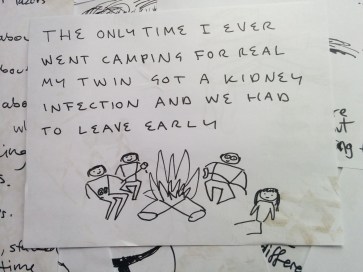 THE ONLY TIME I EVER
WENT CAMPING FOR REAL
MY TWIN GOT A KIDNEY
INFECTION AND WE HAD
TO LEAVE EARLY